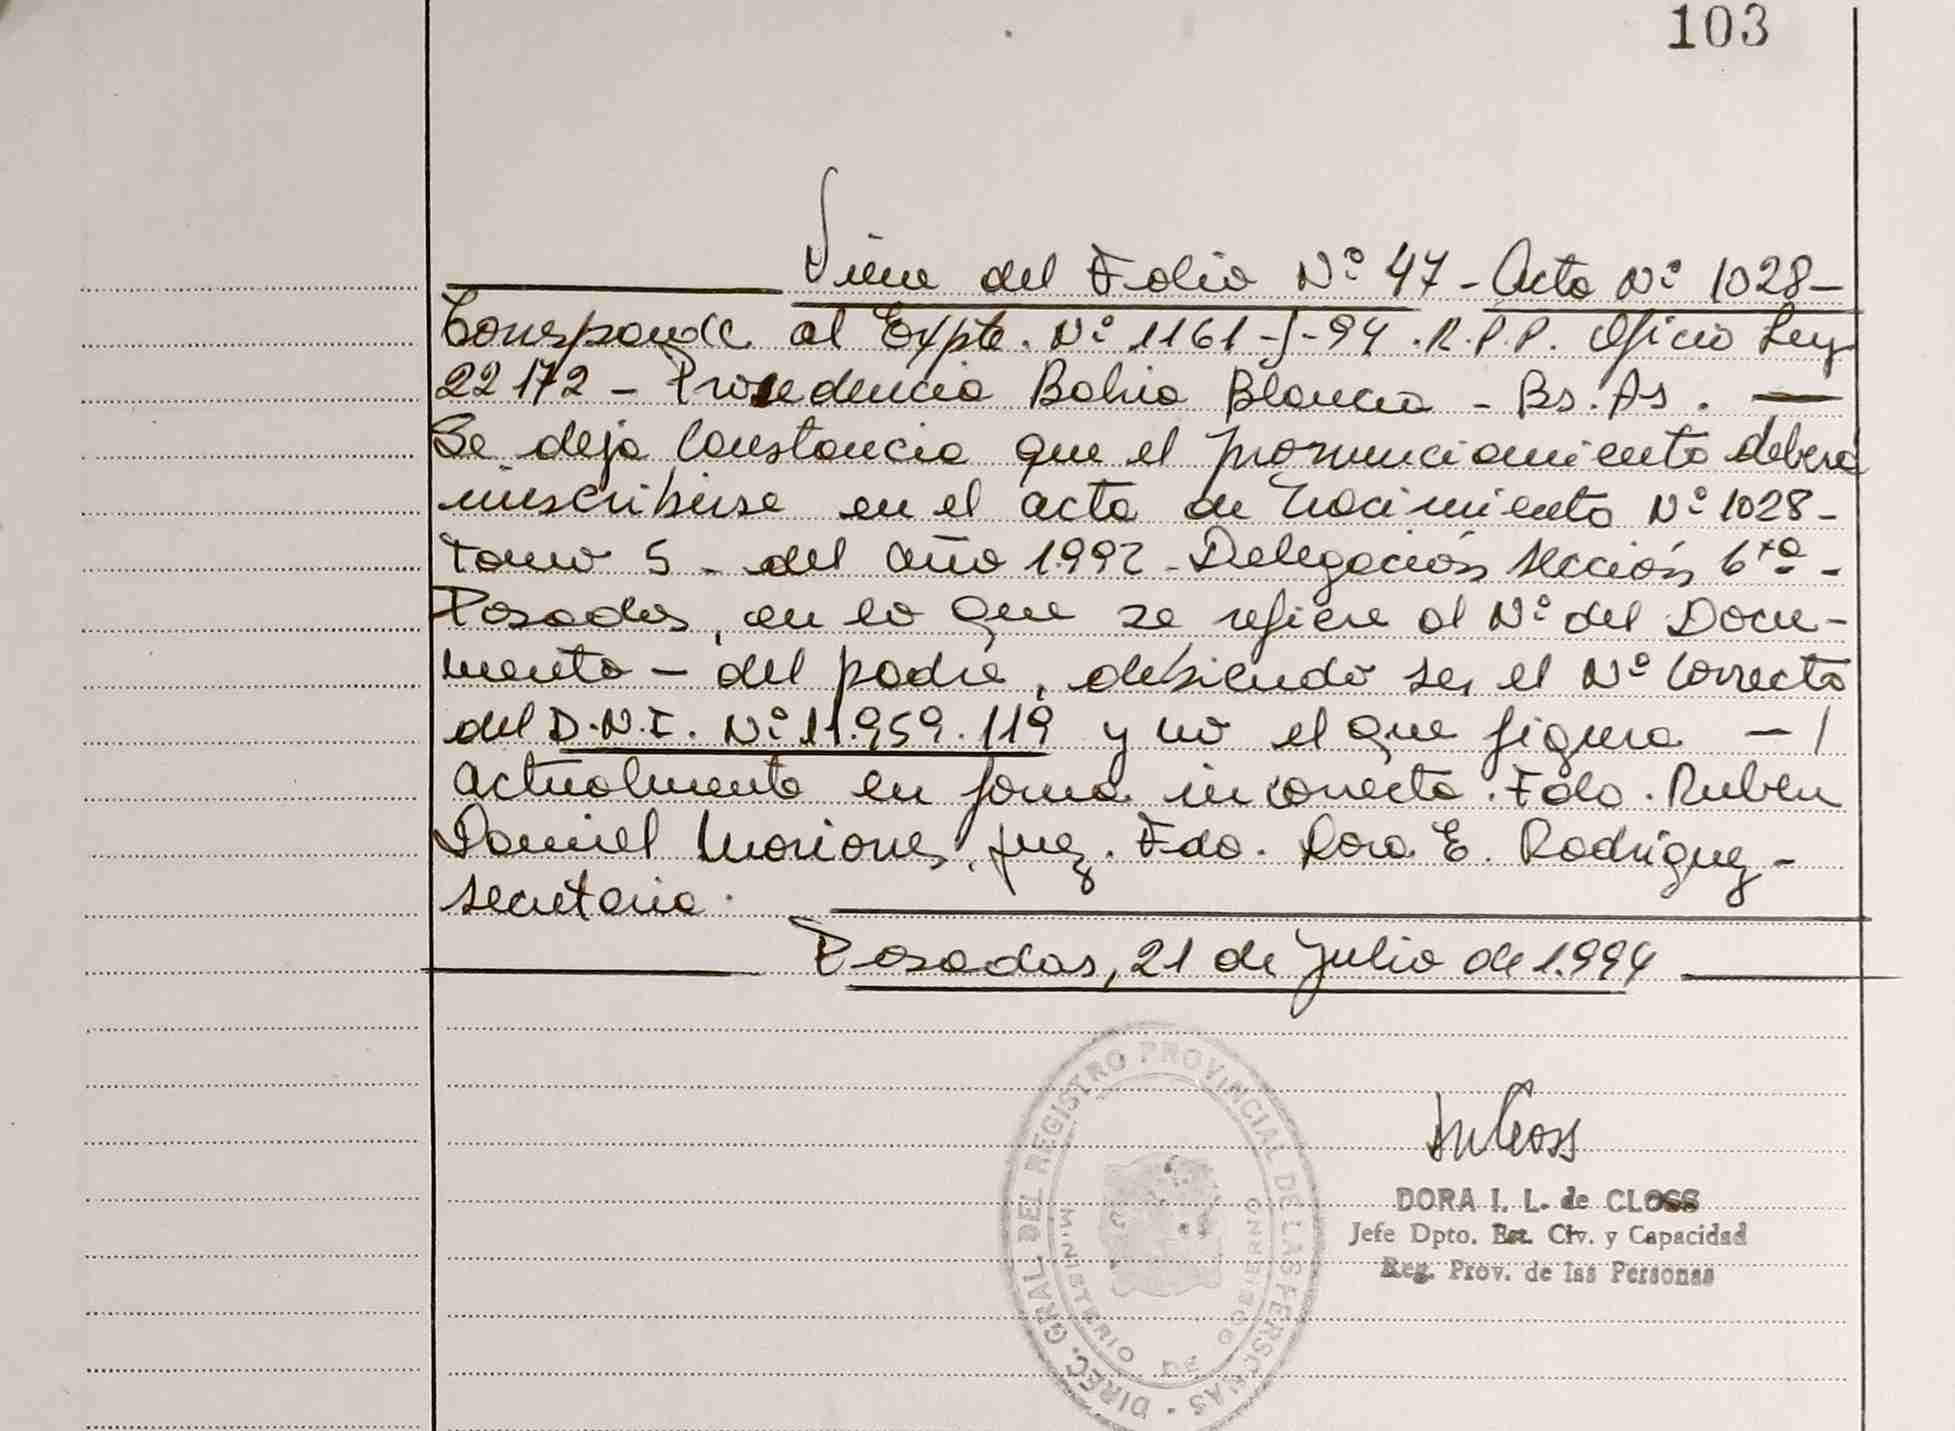 103
Viene del Folio Nº 47 - Acta Nº 1028 -
Corresponde al Expte. Nº 1161 - J - 94 . R.P.P. Oficio Ley
22172 - Procedencia Bahia Blanca - Bs. As. —
Se deja Constancia que el pronunciamiento deberá
inscribirse en el acta de Nacimiento Nº 1028 -
Tomo 5 - del año 1992 - Delegación Sección 6ta -
Posadas, en lo que se refiere al Nº del Docu-
mento - del padre, debiendo ser el Nº Correcto
del D.N.I. Nº 11.959.119 y no el que figura - /
actualmente en forma incorrecta. Fdo. Ruben
Daniel Moriones, Juez. Fdo. Dora E. Rodriguez -
secretaria.
Posadas, 21 de Julio de 1.994
DIREC. GRAL. DEL REGISTRO PROVINCIAL DE LAS PERSONAS
MINISTERIO DE GOBIERNO
DORA I. L. de CLOSS
Jefe Dpto. Est. Civ. y Capacidad
Reg. Prov. de las Personas